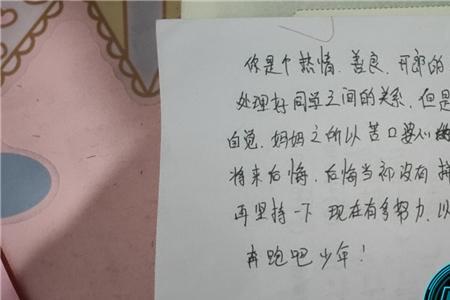 你是个热情、善良、开朗的
处理好同学之间的关系,但是
自觉,妈妈之所以苦口婆心
将来后悔,后悔当初没有
再坚持一下 现在有多努力,以
奔跑吧少年!